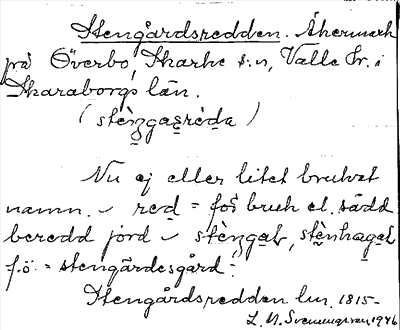 Stengårdsredden. Åkermark
på Överbo, Skarke s:n, Valle hr. i
Skaraborgs län.
(stèŋgasrèda)
Nu ej eller litet brukat
namn. ~ red = för bruk el. sådd
beredd jord ~ stèŋgaḷ, stènhagaḷ
f.ö. = stengärdesgård.
Stengårdsredden lm. 1815-
L. M. Svenungsson 1946